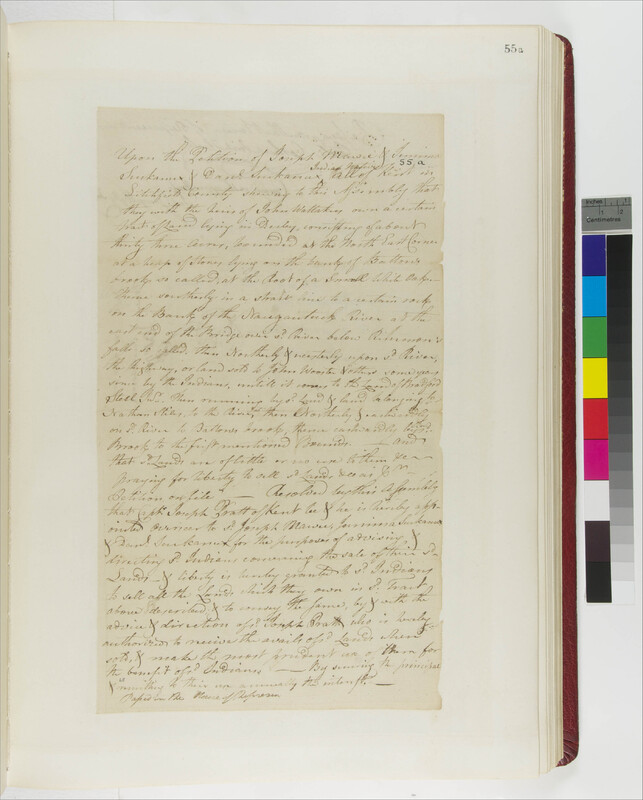 55a
Upon the Petition of Joseph Mauwee & Jemima
55,a
Suckanux & Eunice Suckanux Indian Natives all of Kent in
Litchfield County shewing to this Assembly that
they with the heirs of John Wattahes own a certain
tract of Land lying in Derby, consisting of about
thirty three Acres, bounded at the North East Corner
at a heap of stones lying on the bank of
brook so called, at the Root of a small White Oak
thence southerly in a strait line to a certain rock
on the Bank of the Naugautuck River at the
east end of the Bridge over sd. River below Rimmon
falls so called, then Northerly & westerly upon sd River,
the highway, or land sold to John Wooster & others some years
since by the Indians, untill it comes to the Land of Bradford
Steel Esqr. then running by sd. Land & land belonging to
Nathan Stiles, to the River, then Northerly &
on sd. River to brook, thence eastwardly by sd.
Brook to the first mentioned Bounds — and
that sd. Lands are of little or no use to them &c
praying for liberty to sell sd. Lands &c as pr
Petition on file — Resolved by this Assembly
that Joseph Pratt of Kent be & he is hereby app-
ointed overseer to sd. Joseph Mauwee, Jemima Suckanux
& Suckanux for the purposes of advising &
directing sd. Indians concerning the sale of their sd.
Lands — & liberty is hereby granted to sd. Indians
to sell all the Lands which they own in sd. Tract
above described, & to convey the same, by & with the
advice & direction of sd. Joseph Pratt who is hereby
authorized to receive the avails of sd. Lands when
sold, & make the most prudent use of them for
the benefit of sd. Indians — By securing the principal
& to their use annually the interest. —
Passed in the House of
Inches
Centimetres